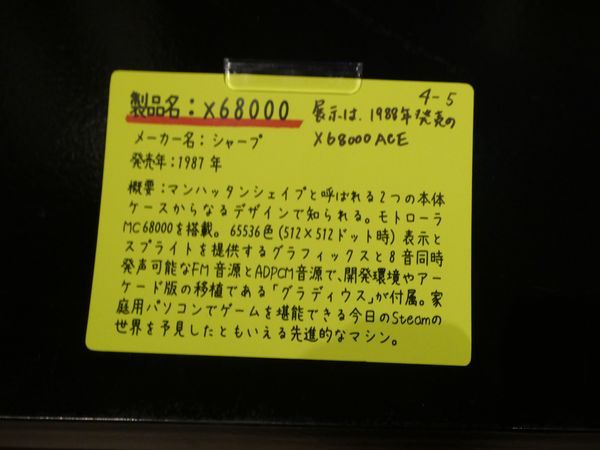 4-5
製品名：X68000
展示は、1988年発売の
X68000 ACE
メーカー名：シャープ
発売年：1987年
概要：マンハッタンシェイプと呼ばれる2つの本体
ケースからなるデザインで知られる。モトローラ
MC68000を搭載。65536色(512×512ドット時)表示と
スプライトを提供するグラフィックスと8音同時
発声可能なFM音源とADPCM音源で、開発環境やアー
ケード版の移植である「グラディウス」が付属。家
庭用パソコンでゲームを堪能できる今日のSteamの
世界を予見したともいえる先進的なマシン。